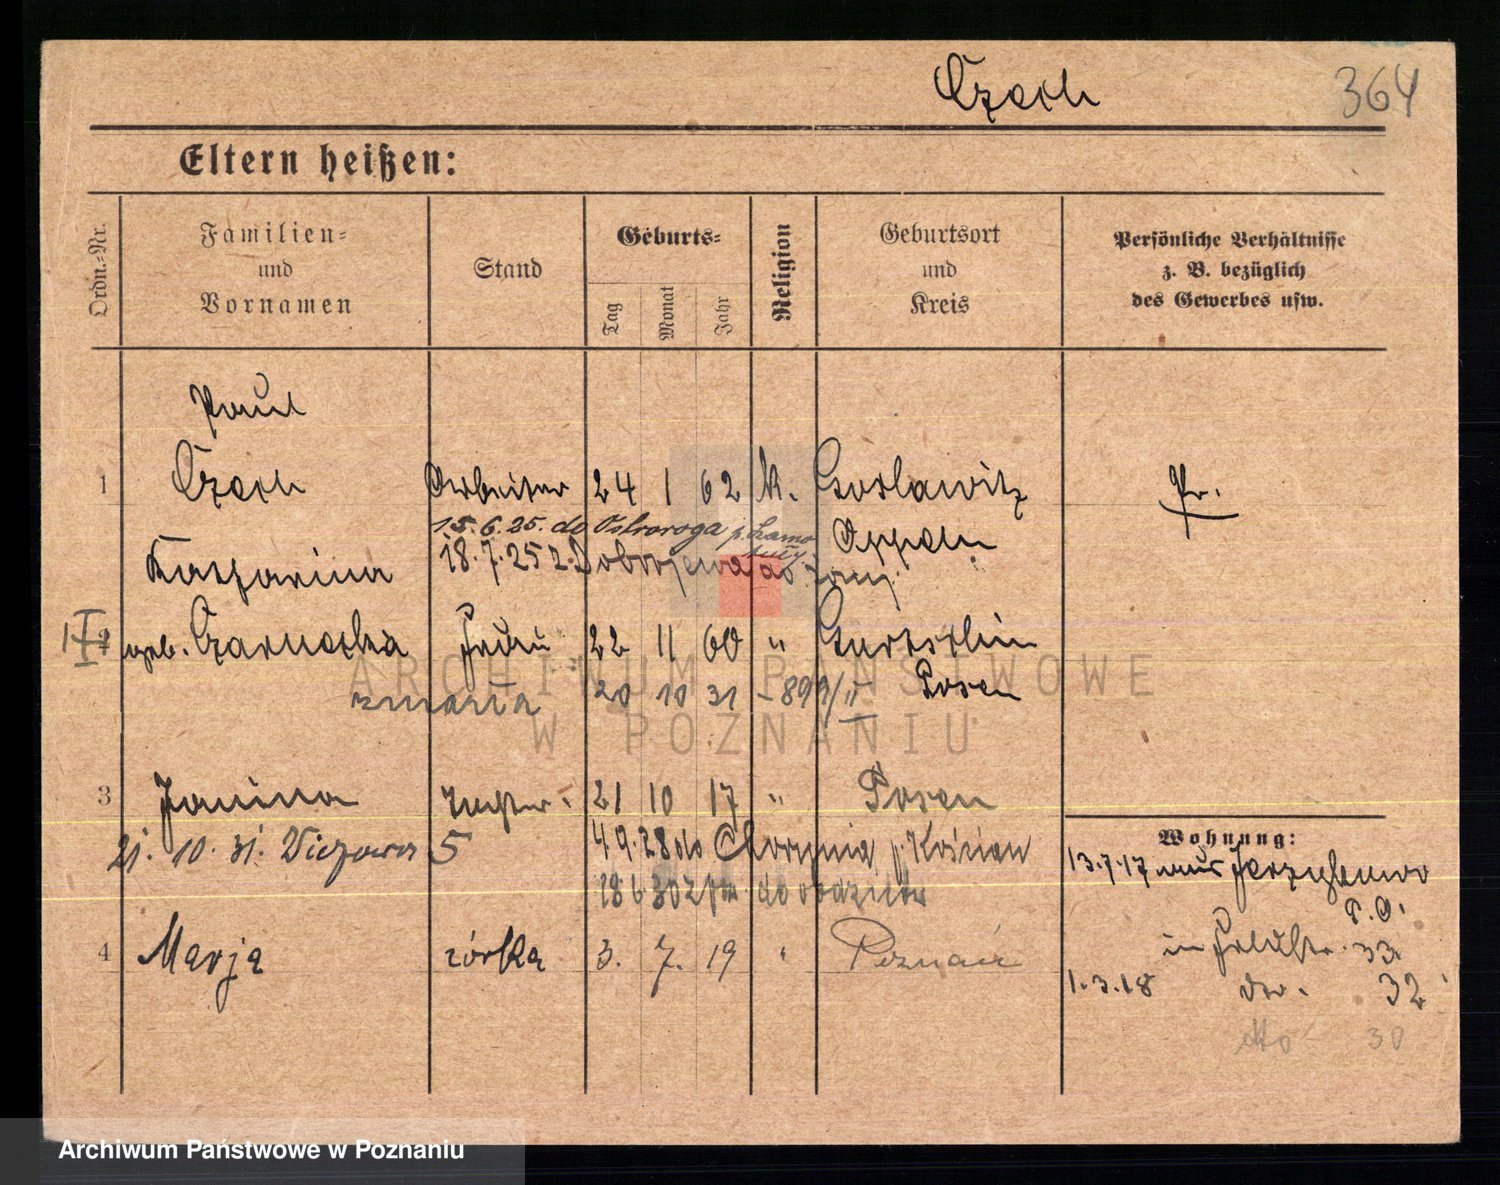 Czech 364
Eltern heißen:
Ordn.-Nr.
Familien-
und
Vornamen
Stand
Geburts-
Tag
Monat
Jahr
Religion
Geburtsort
und
Kreis
Persönliche Verhältnisse
z. B. bezüglich
des Gewerbes usw.
Paul
1 Czech Arbeiter 24 1 62 k. Goslawitz Pr.
15.6.25. do Ostroroga p. Szamo
tuły
Oppeln
Katharina 18.7.25 z Dobrojewa do
geb. Czarnecka Frau 22 11 60 "
zmarła 20 10 31 - 899/II Posen
3 Janina Tochter. 21 10 17 " Posen
Wohnung:
21. 10. 31. 5 4 9. 28 do Chorynia p. Kościan
13.7.17 aus
18 6 30 z do
P. O.
4 Marja córka 3. 7. 19 " Poznań
in 33.
1.3.18 32
dto 30
ARCHIWUM PAŃSTWOWE
W POZNANIU
Archiwum Państwowe w Poznaniu